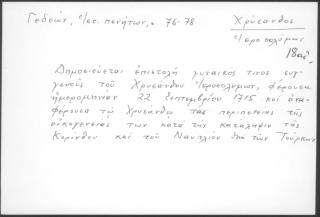 Γεδεών, Ἱστ. πενήτων, σ. 76-78
Χρύσανθος
Ἱεροσολύμων
18ος
Δημοσιεύεται ἐπιστολή γυναικος τινος συγ-
γενοῦς τοῦ Χρυσάνθου Ἱεροσολύμων, φέρουσα
ἡμερομηνίαν 22 Σεπτεμβρίου 1715 καί ἀνα-
φέρουσα τῷ Χρυσάνθῳ τας περιπετείας τῆς
οἰκογενείας των κατά την κατάληψιν τῆς
Κορίνθου καί τοῦ Ναυπλίου ὑπό των Τούρκων